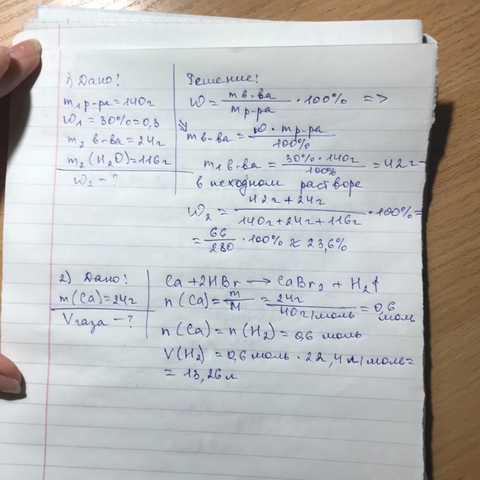 1) Дано:
m₁ р-ра = 140г
ω₁ = 30% = 0,3
m₂ в-ва = 24г
m₂(H₂O) = 116г
ω₂ - ?
Решение:
ω = m в-ва / m р-ра · 100% =>
=> m в-ва = ω · m р-ра / 100%
m₁ в-ва = 30% · 140г / 100% = 42г
в исходном растворе
ω₂ = 42г + 24г / 140г + 24г + 116г · 100% =
= 66 / 280 · 100% ≈ 23,6%
2) Дано:
m(Ca) = 24г
Vгаза - ?
Ca + 2HBr → CaBr₂ + H₂↑
n(Ca) = m / M = 24г / 40г/моль = 0,6 моль
n(Ca) = n(H₂) = 0,6 моль
V(H₂) = 0,6 моль · 22,4 л/моль =
= 13,26 л